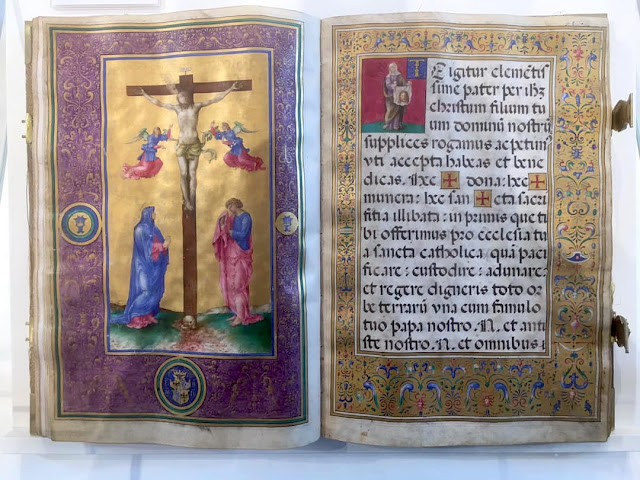 TEigitur clemētis
sime pater per ihz
christum filium tu
um dominū nostrū
supplices rogamus ac petimꝰ
vti accepta habeas et bene
dicas. Hec ✠ dona: hec
munera: hec san ✠ cta sacri
ficia illibata: in primis que ti
bi offerimus pro ecclesia tu
a sancta catholica: quā paci
ficare: custodire: adunare:
et regere digneris toto or
be terrarū vna cum famulo
tuo papa nostro .N. et anti
ste nostro .N. et omnibus